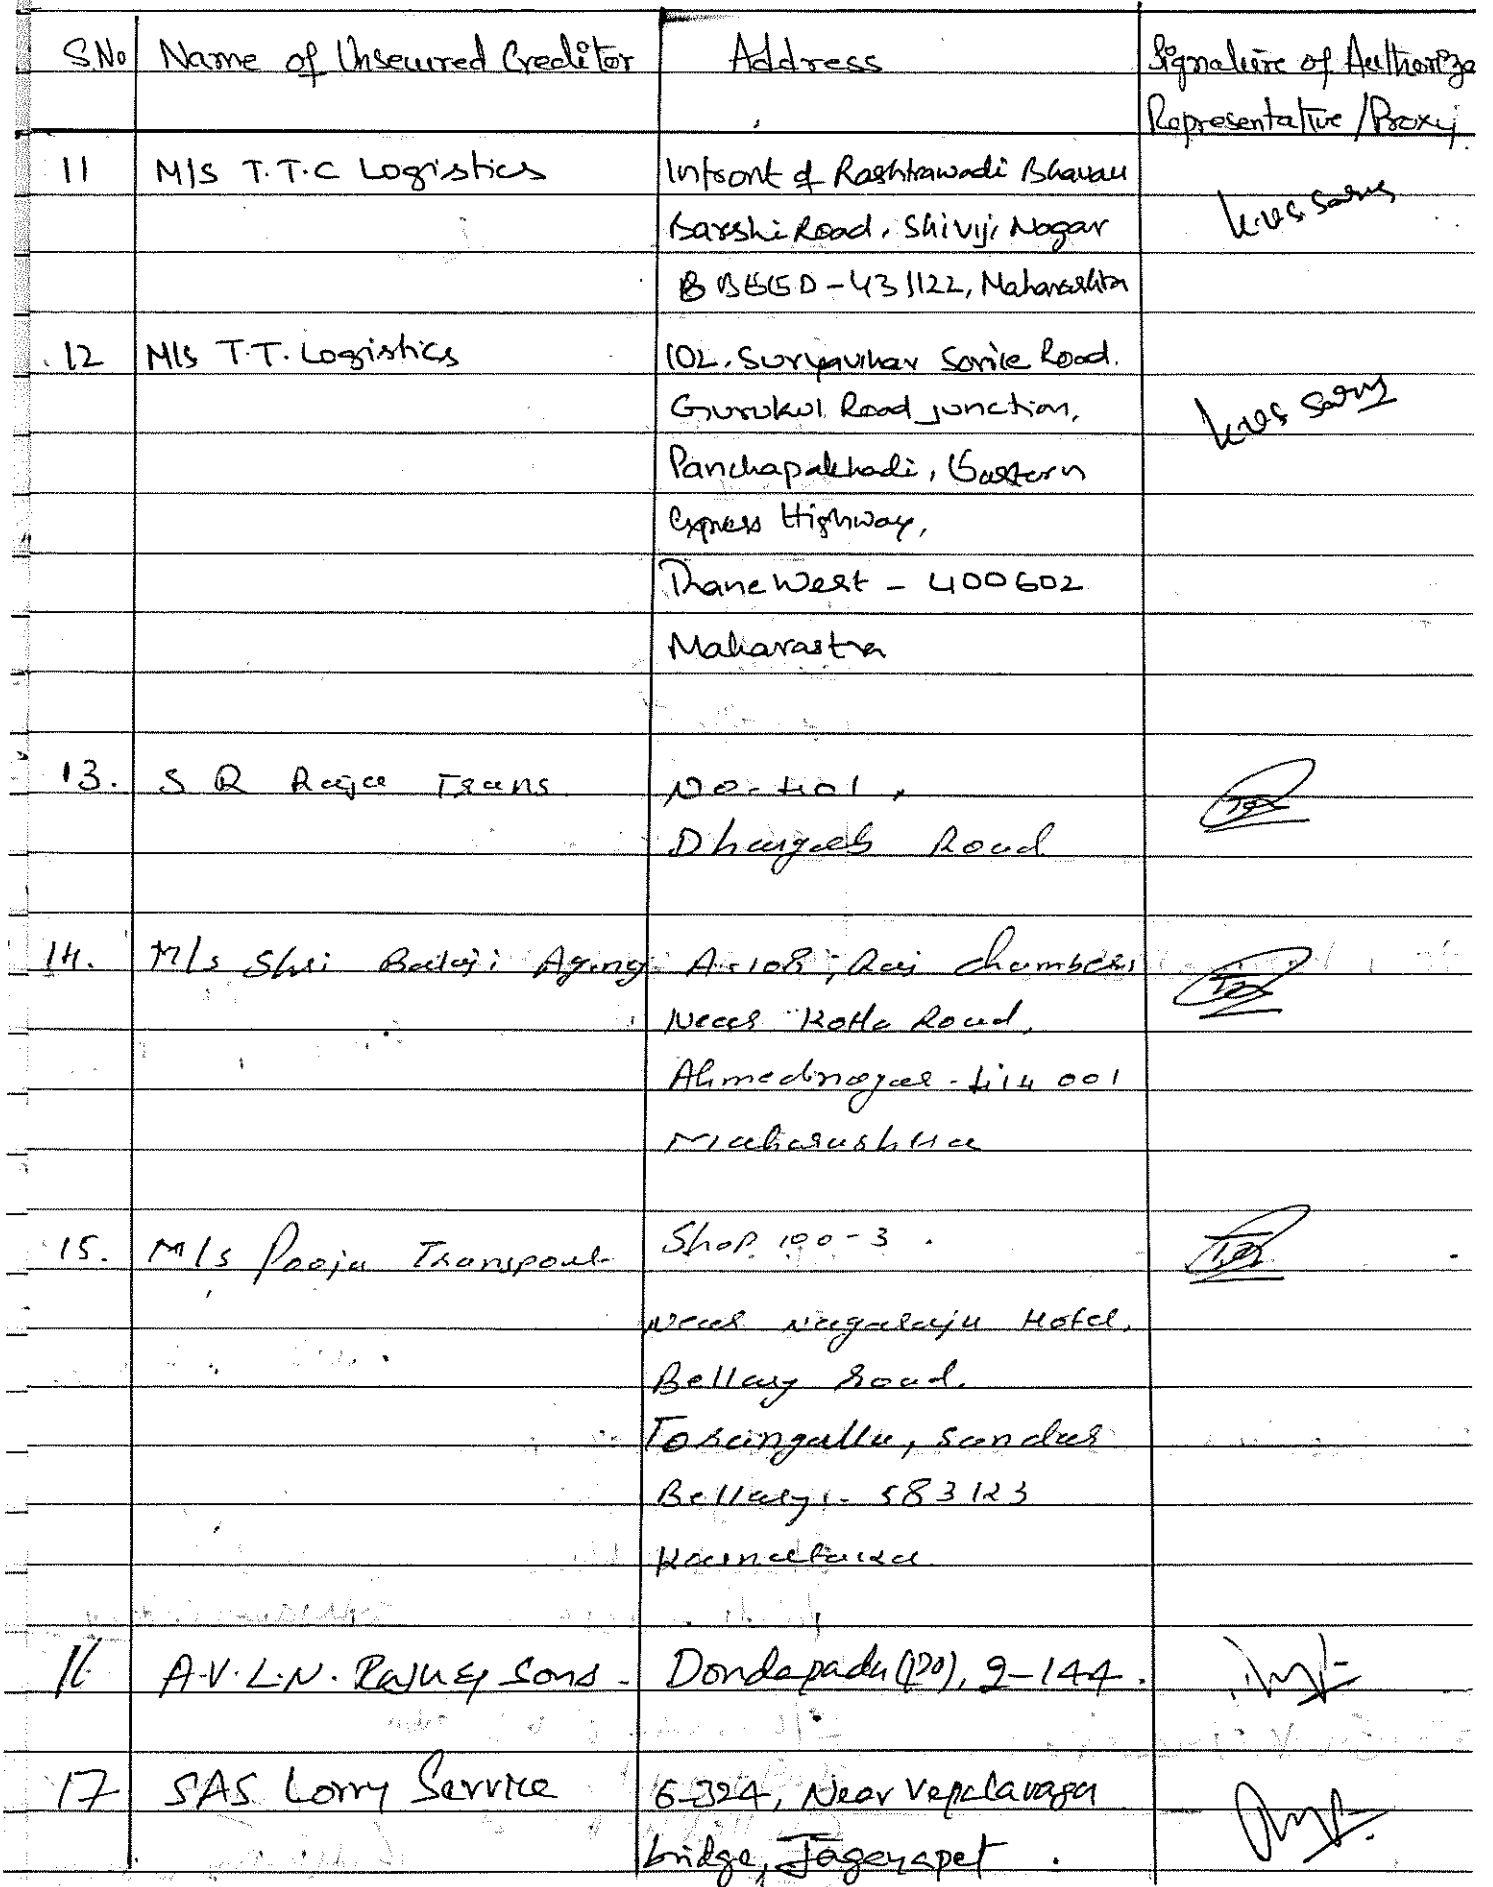 S.No Name of Unsecured Creditor Address Signature of Authoriza
Representative / Proxy.
11 M/s T.T.C Logistics Infront of Rashtrawadi Bhavan
Barshi Road, Shiviji Nagar
B BEED - 431122, Maharashtra
12 M/s T.T. Logistics 102. Suryavihar Service Road.
Gurukul Road junction,
Panchapakhadi, Eastern
Express Highway,
Thane West - 400602
Maharastra
13. S R Raja Trans No-401,
Road
14. M/s Shri Balaji Agency A-108, Raj Chambers
Near Kotla Road,
Ahmednagar - 414 001
Maharashtra
15. M/s Pooja Transport Shop no-3.
Near Nagaraju Hotel,
Bellary Road.
Toranagallu, Sandur
Bellary - 583123
Karnataka
16 A.V.L.N. Raju & Sons - Dondapadu (PO), 2-144.
17 SAS Lorry Service 6-324, Near
bridge, Jaggayapet.